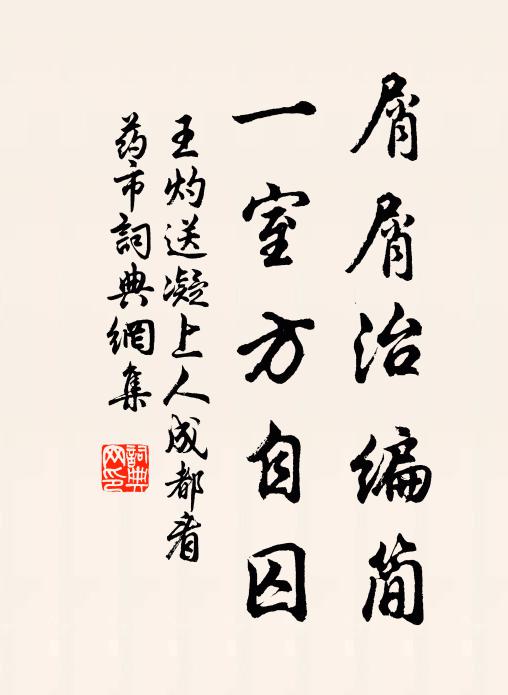 屑屑治编简
一室方自囚
王灼送凝上人成都看
药市詞典網集
詞典
网印